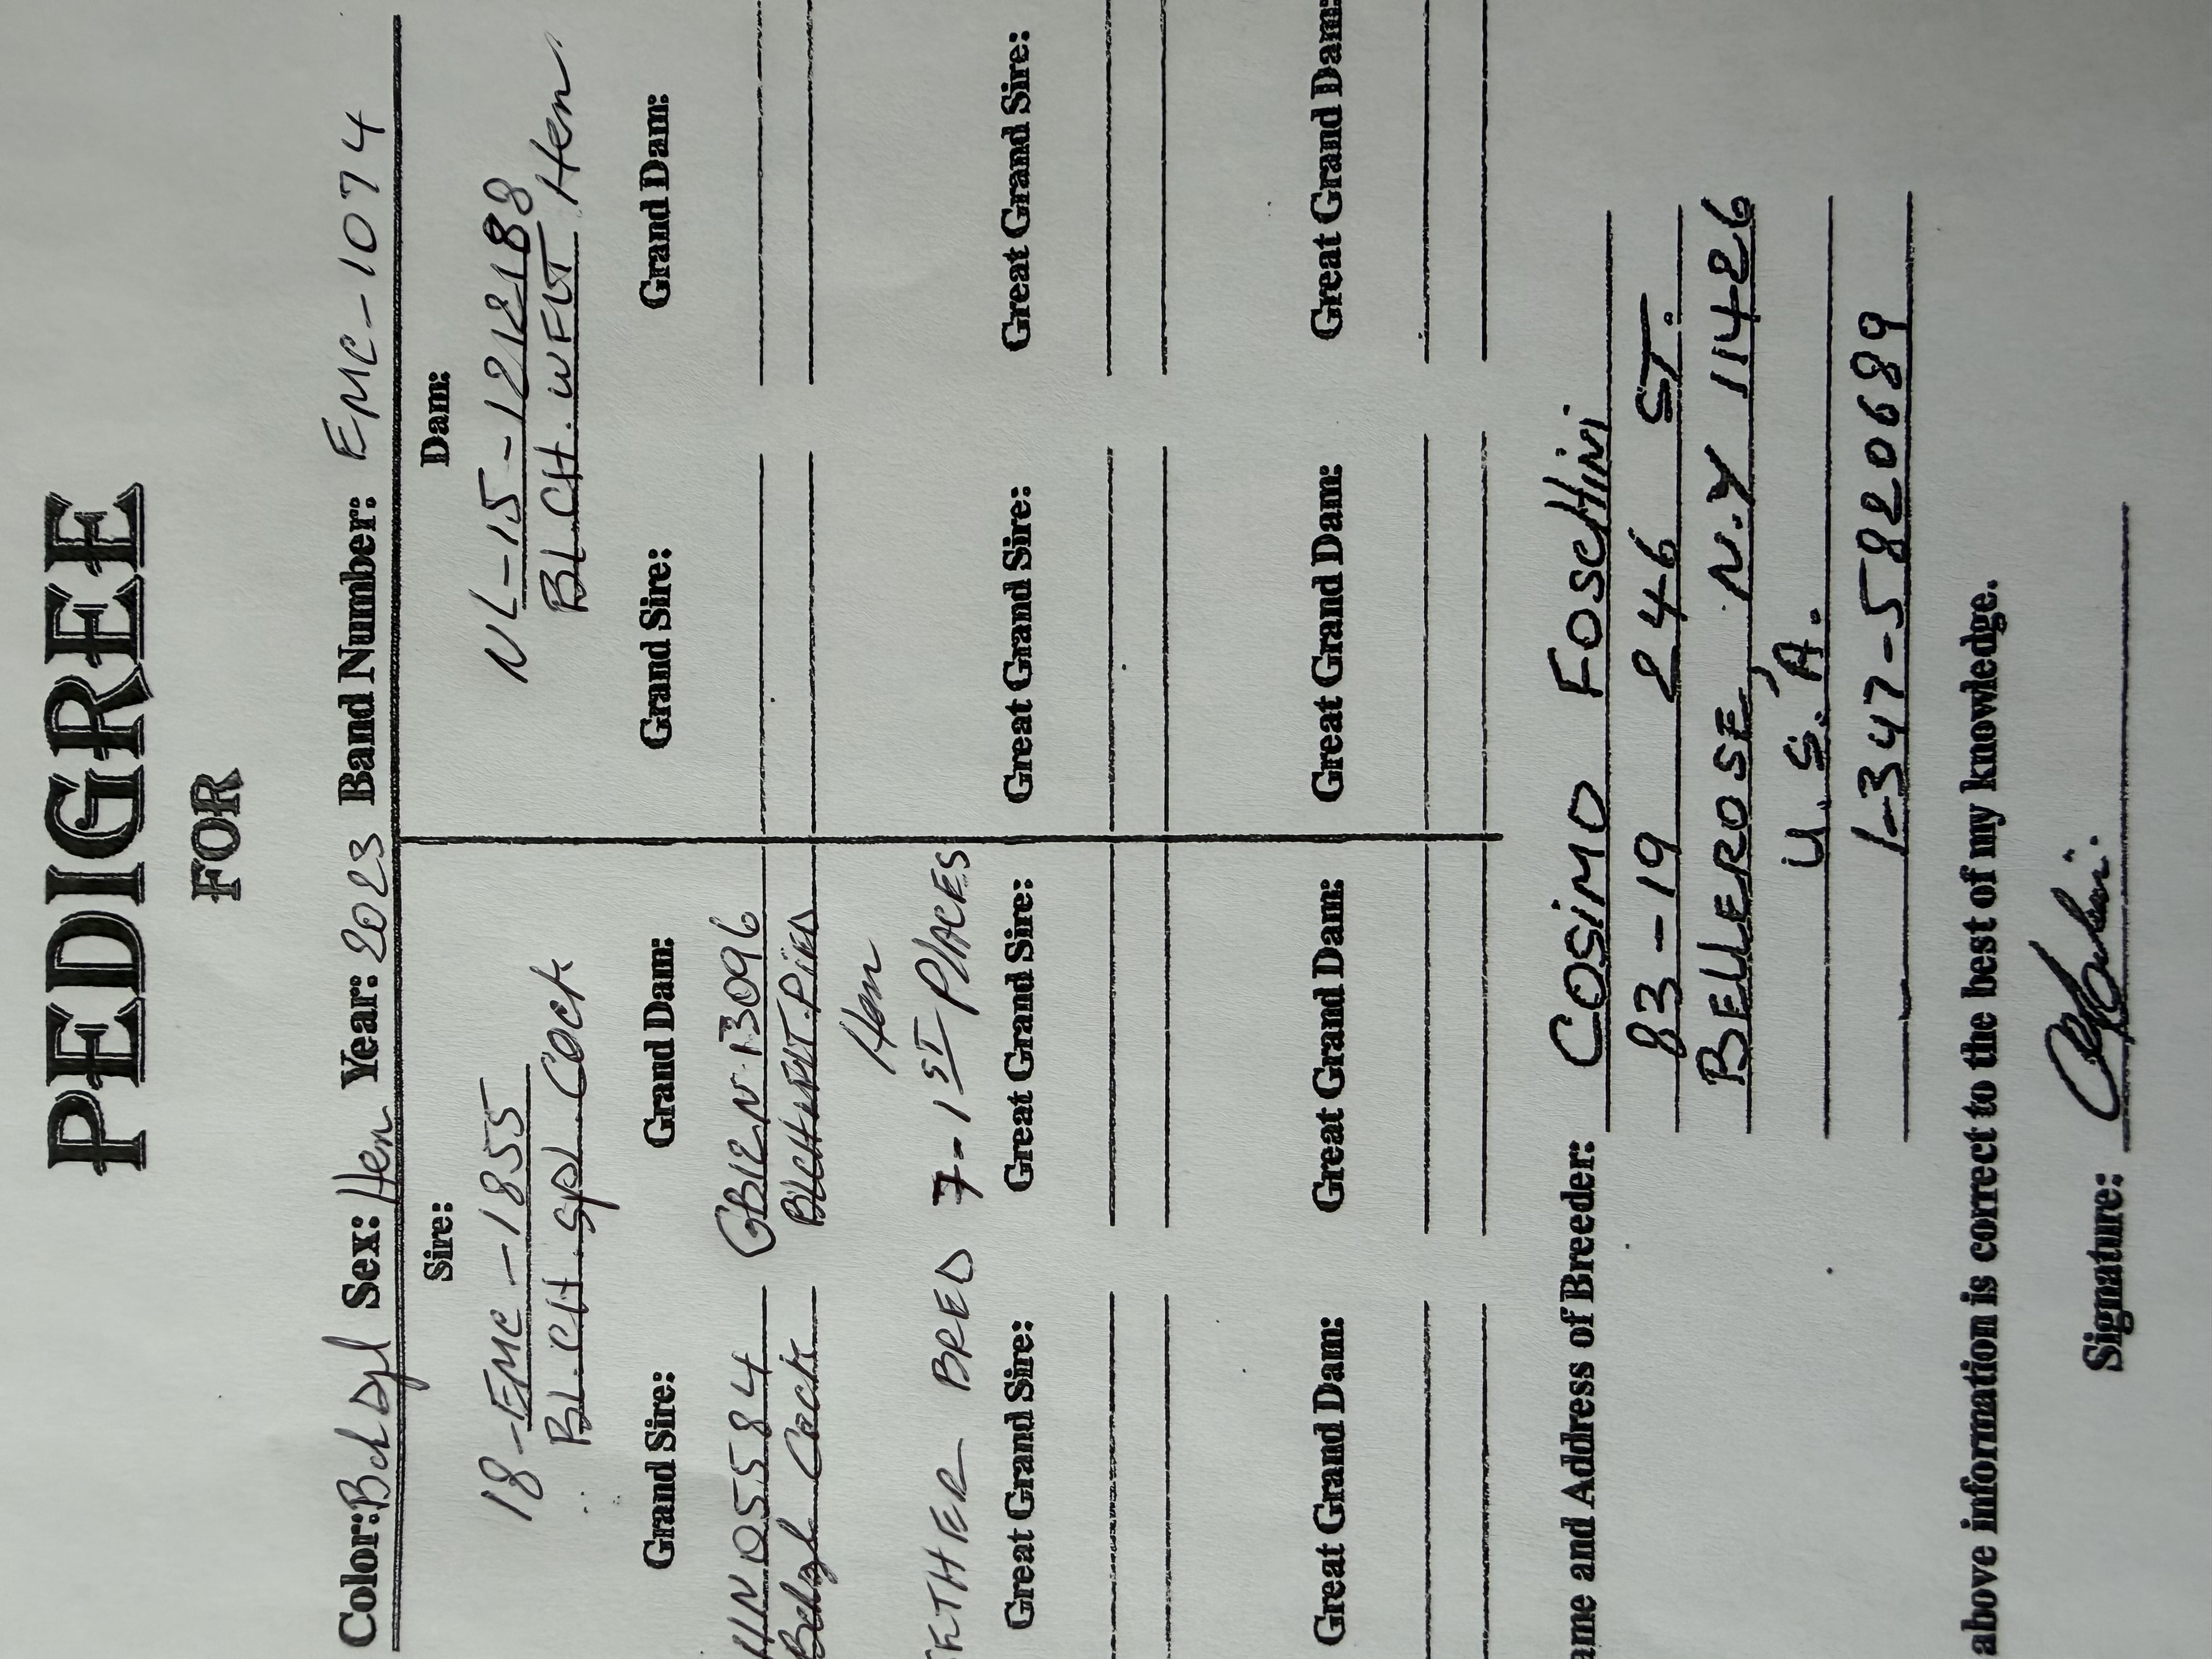 PEDIGREE
FOR
Color: Sex: Hen Year: 2023 Band Number: EMC-1074
Sire: Dam:
18-EMC-1855 NL-15-1212188
BL.CH.SPL.Cock BL.CH.WFLT Hen
Grand Sire: Grand Dam: Grand Sire: Grand Dam:
11N05584 GB12N.13096
Cock
Hen
BRED 7-1ST PLACES
Great Grand Sire: Great Grand Sire: Great Grand Sire: Great Grand Sire:
Great Grand Dam: Great Grand Dam: Great Grand Dam: Great Grand Dam:
ame and Address of Breeder: COSIMO FOSCHINI
83-19 246 ST.
BELLEROSE, N.Y 11426
U.S.A.
1-347-5820689
above information is correct to the best of my knowledge.
Signature: